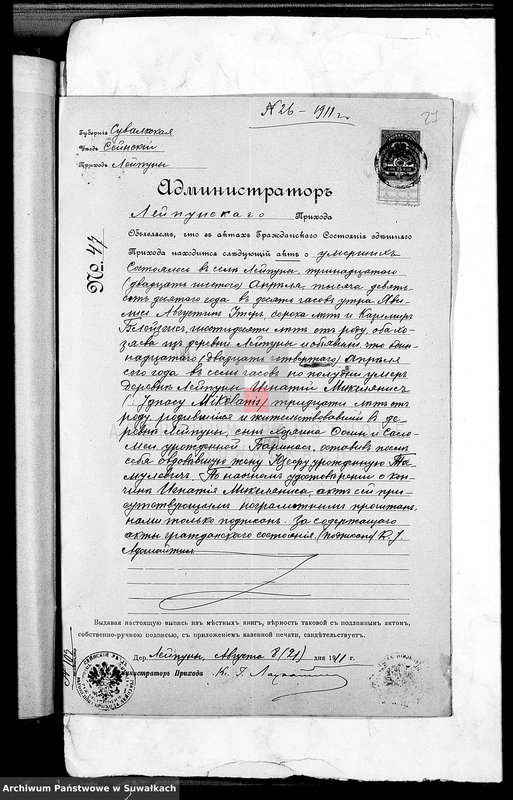 N 26 – 1911 г.
27
Губернія Сувалкская
Уѣздъ Сейнскій
Приходъ Лейпуны
Администраторъ
Лейпунскаго Прихода
Объявляемъ, что въ актахъ Гражданскаго Состоянія здѣшняго
Прихода находится слѣдующій актъ о умершихъ
No. 47
Состоялось въ селѣ Лейпуны, тринадцатаго
(двадцать шестого) Апрѣля, тысяча девять
сотъ десятого года въ десять часовъ утра. Яви
лись Августинъ сорока лѣтъ и Казимиръ
шестидесяти лѣтъ отъ роду, оба хо
зяева изъ деревни Лейпуны и объявили, что один
надцатаго (двадцать четвертаго) Апрѣля
сего года въ семь часовъ по полудни умеръ
деревни Лейпуны Игнатій Микелянисъ
(Ignacy Mikielanis), тридцати лѣтъ отъ
роду, родившійся и жительствовавшій въ де
ревнѣ Лейпуны, сынъ хозяина Осипа и Сало
меи урожденной оставивъ послѣ
себя овдовѣвшую жену урожденную
По наочномъ удостовѣреніи о кон
чинѣ Игнатія Микеляниса, актъ сей при
сутствующимъ неграмотнымъ прочитанъ,
нами только подписанъ. За содержащаго
акты гражданскаго состоянія (подписано) К. І.
Адомайтисъ
Выдавая настоящую выпись изъ мѣстныхъ книгъ, вѣрность таковой съ подлиннымъ актомъ,
собственно-ручною подписью, съ приложеніемъ казенной печати, свидѣтельствуетъ.
Дер. Лейпуны, Августа 8 (21) дня 1911 г.
Администраторъ Прихода К. Г.
Archiwum Państwowe w Suwałkach